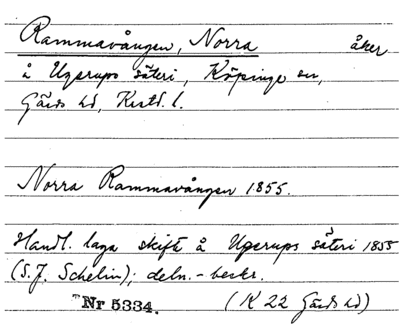 Rammavången, Norra åker
å Ugerups säteri, Köpinge sn,
Gärds hd, Krstd. l.
Norra Rammavången 1855.
Handl. laga skift å Ugerups säteri 1855
(S.J. Schelin); deln.-beskr.
Nr 5334. (K 22 Gärds hd)